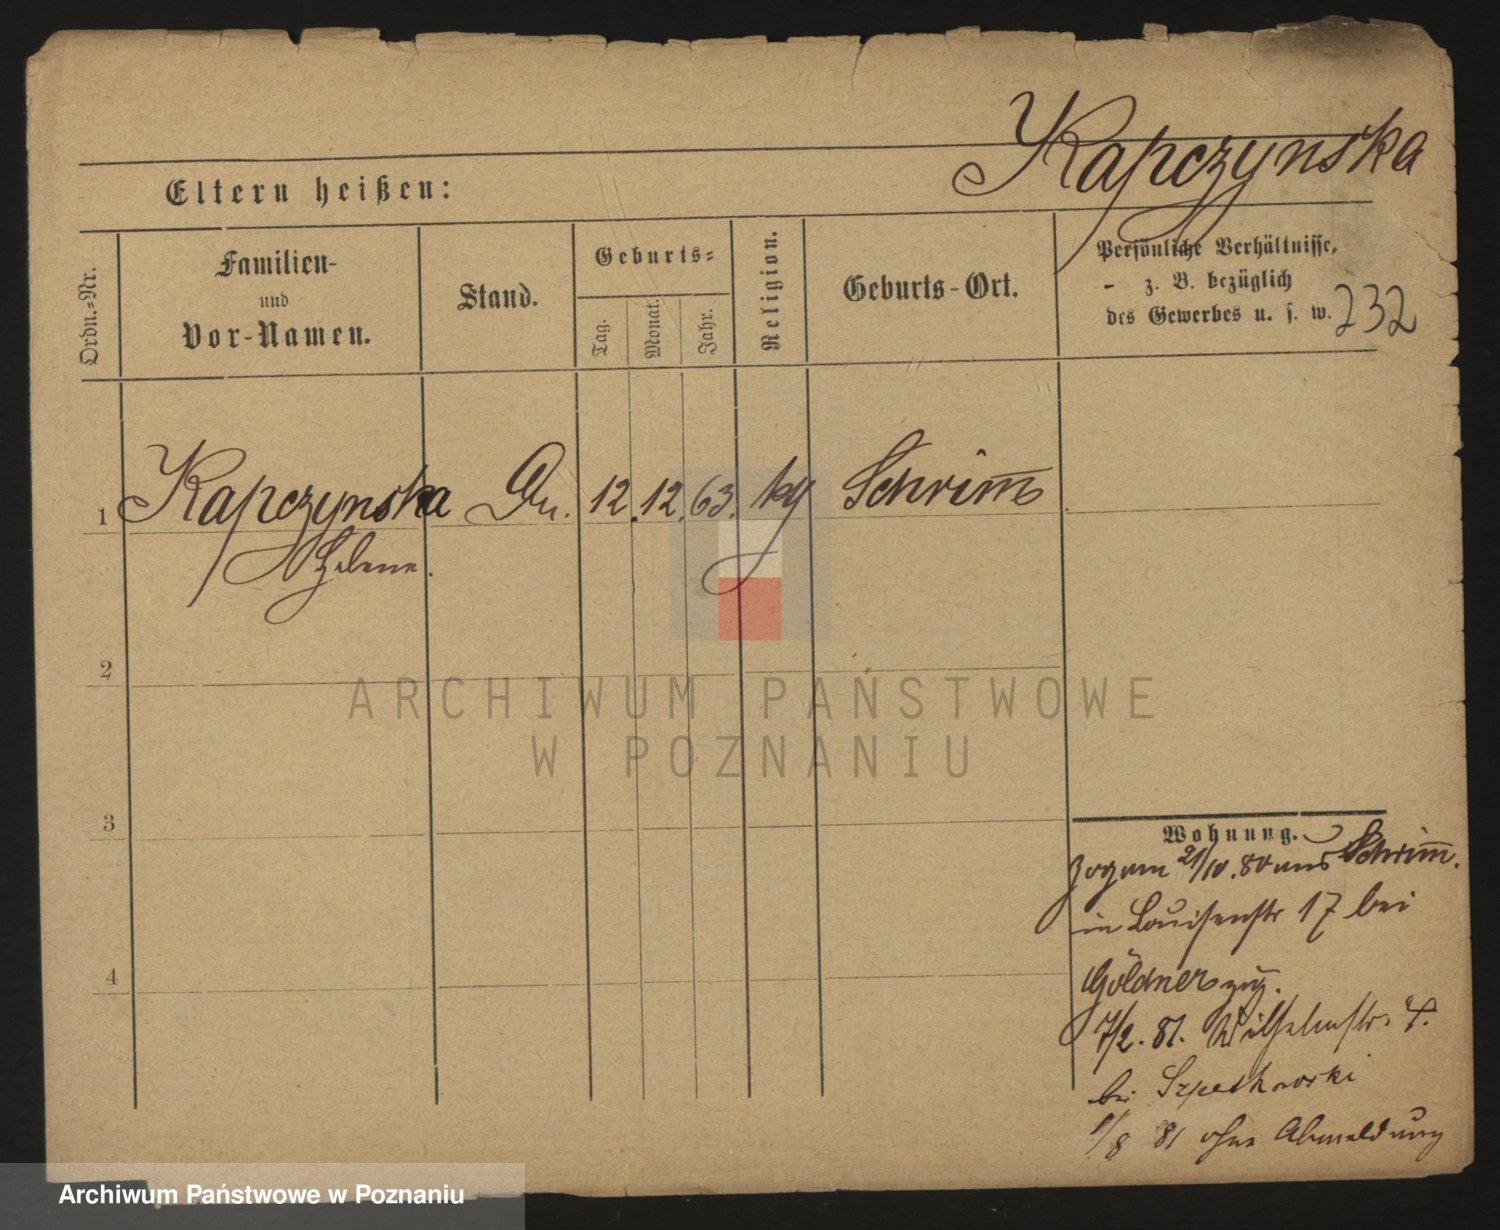 Kapczynska
Eltern heißen:
Ordn.-Nr.
Familien-
und
Vor-Namen.
Stand.
Geburts-
Tag.
Monat.
Jahr.
Religion.
Geburts-Ort.
Persönliche Verhältnisse,
z. B. bezüglich
des Gewerbes u. s. w.
232
1 Kapczynska 12. 12. 63. Schrimm
Helene.
2
3
4
Wohnung.
Zog am 21/10. 80 aus Schrimm.
in Louisenstr 17 bei
Göldner zu.
7/2. 81. Wilhelmstr. 4.
bei Szpetkowski
1/8 81 ohne Abmeldung
ARCHIWUM PAŃSTWOWE
W POZNANIU
Archiwum Państwowe w Poznaniu